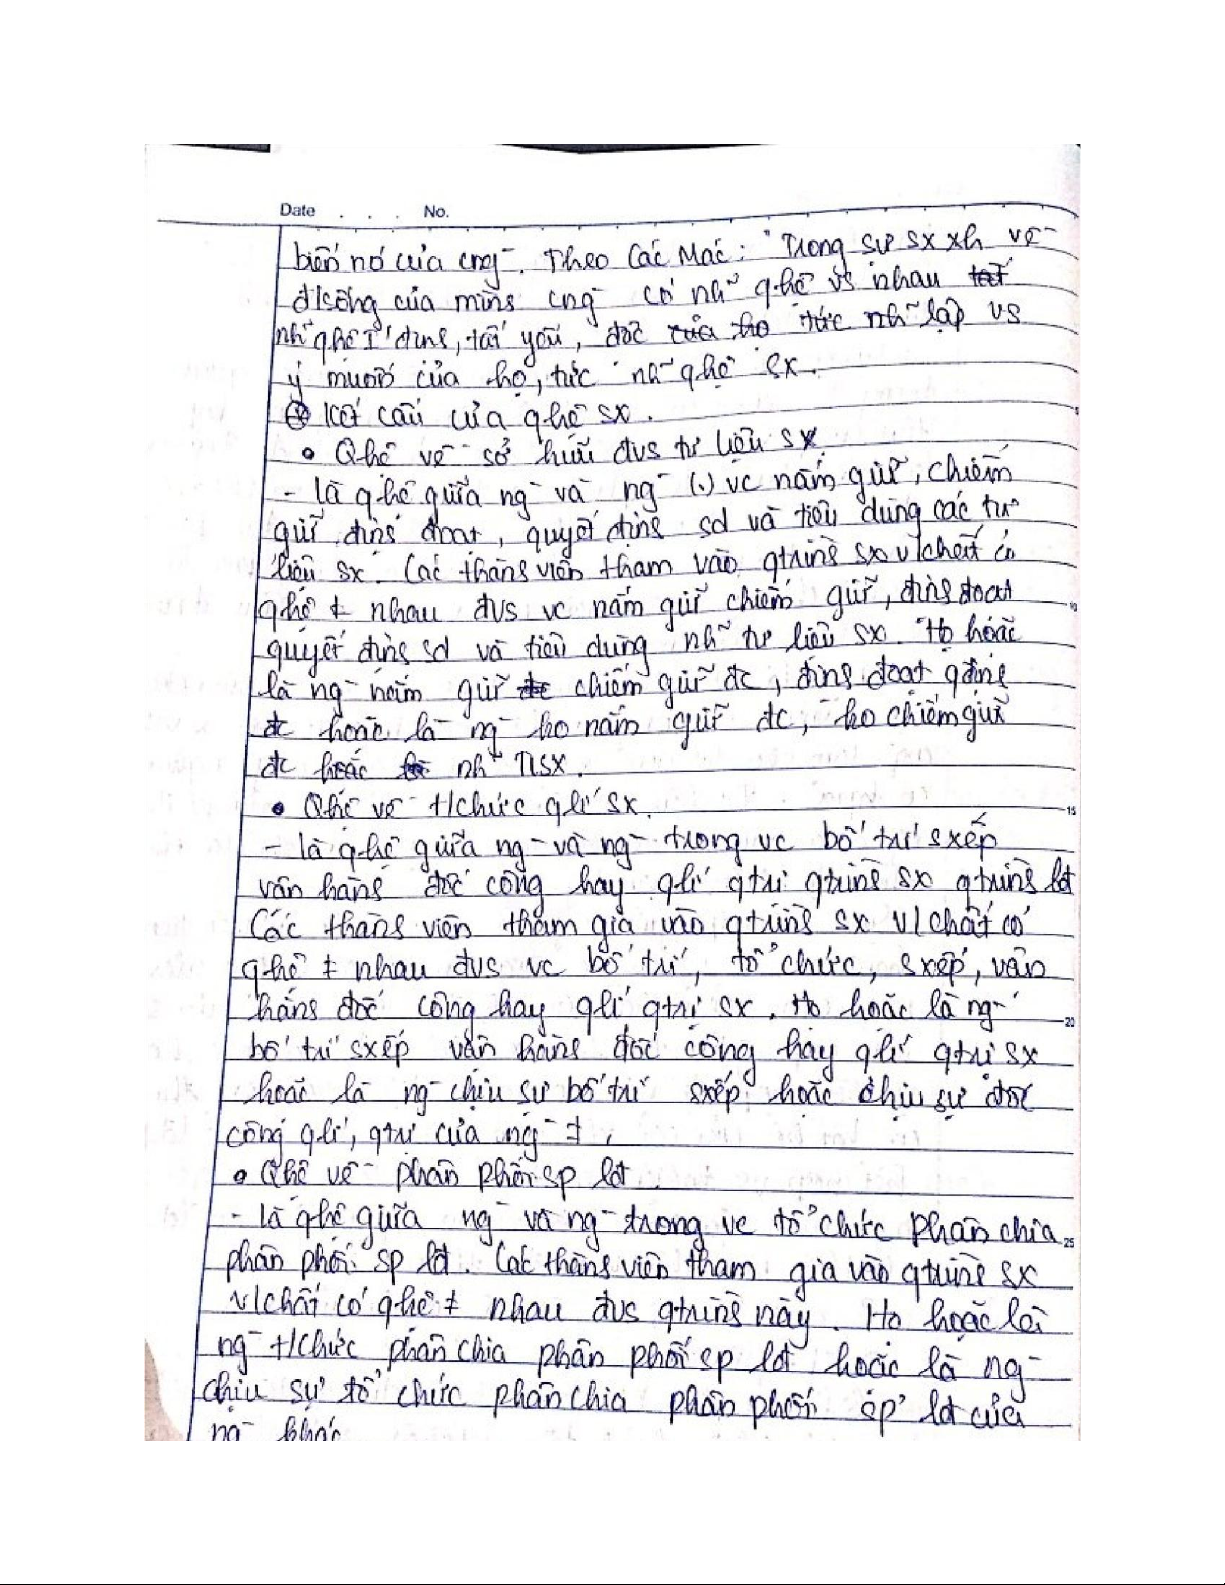 Date . . . No.
biến nó của cng̃. Theo Các Mác: "Trong sự sx xh về
đ/sống của mình cng̃ có nh~ qhệ vs nhau
nh~ qhệ I' định, tất yếu, độc tức nh~ lập vs
ý muốn của họ, tức nh~ qhệ sx.
⊛ Kết cấu của qhệ sx.
• Qhệ về sở hữu đvs tư liệu sx
- là qhệ giữa ng̃ và ng̃ (.) vc nắm giữ, chiếm
giữ định đoạt, quyết định sd và tiêu dùng các tư
liệu sx. Các thành viên tham vào qtrình sx v/chất có
qhệ ≠ nhau đvs vc nắm giữ chiếm giữ, định đoạt
quyết định sd và tiêu dùng nh~ tư liệu sx. Họ hoặc
10
là ng̃ nắm giữ chiếm giữ đc, định đoạt
đc hoặc là ng̃ ko nắm giữ đc, ko chiếm giữ
đc hoặc nh~ TLSX.
• Qhệ về t/chức qlí sx.
15
- là qhệ giữa ng̃ và ng̃ trong vc bố trí sxếp
vận hành đốc công hay qlí qtrị qtrình sx qtrình lđ
Các thành viên tham gia vào qtrình sx v/chất có
qhệ ≠ nhau đvs vc bố trí, tổ chức, sxếp, vận
hành đốc công hay qlí qtrị sx. Họ hoặc là ng̃
20
bố trí sxếp vận hành đốc công hay qlí qtrị sx
hoặc là ng̃ chịu sự bố trí sxếp hoặc chịu sự đốc
công qlí, qtrị của ng̃ ≠.
• Qhệ về phân phối sp lđ.
- là qhệ giữa ng̃ và ng̃ trong vc tổ chức phân chia
25
phân phối sp lđ. Các thành viên tham gia vào qtrình sx
v/chất có qhệ ≠ nhau đvs qtrình này. Họ hoặc là
ng̃ t/chức phân chia phân phối sp lđ hoặc là ng̃
chịu sự tổ chức phân chia phân phối sp lđ của
ng̃ khác